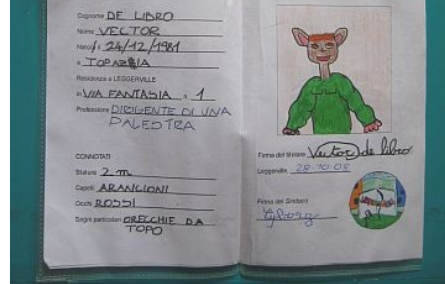 Cognome DE LIBRO
Nome VECTOR
Nato il 24/12/1981
a TOPAZIA
Residenza a LEGGERVILLE
in VIA FANTASIA n. 1
Professione DIRIGENTE DI UNA
PALESTRA
CONNOTATI
Statura 2 m
Capelli ARANCIONI
Occhi ROSSI
Segni particolari ORECCHIE DA
TOPO
Firma del titolare Vector de libro
Leggerville, 28-10-08
Firma del Sindaco